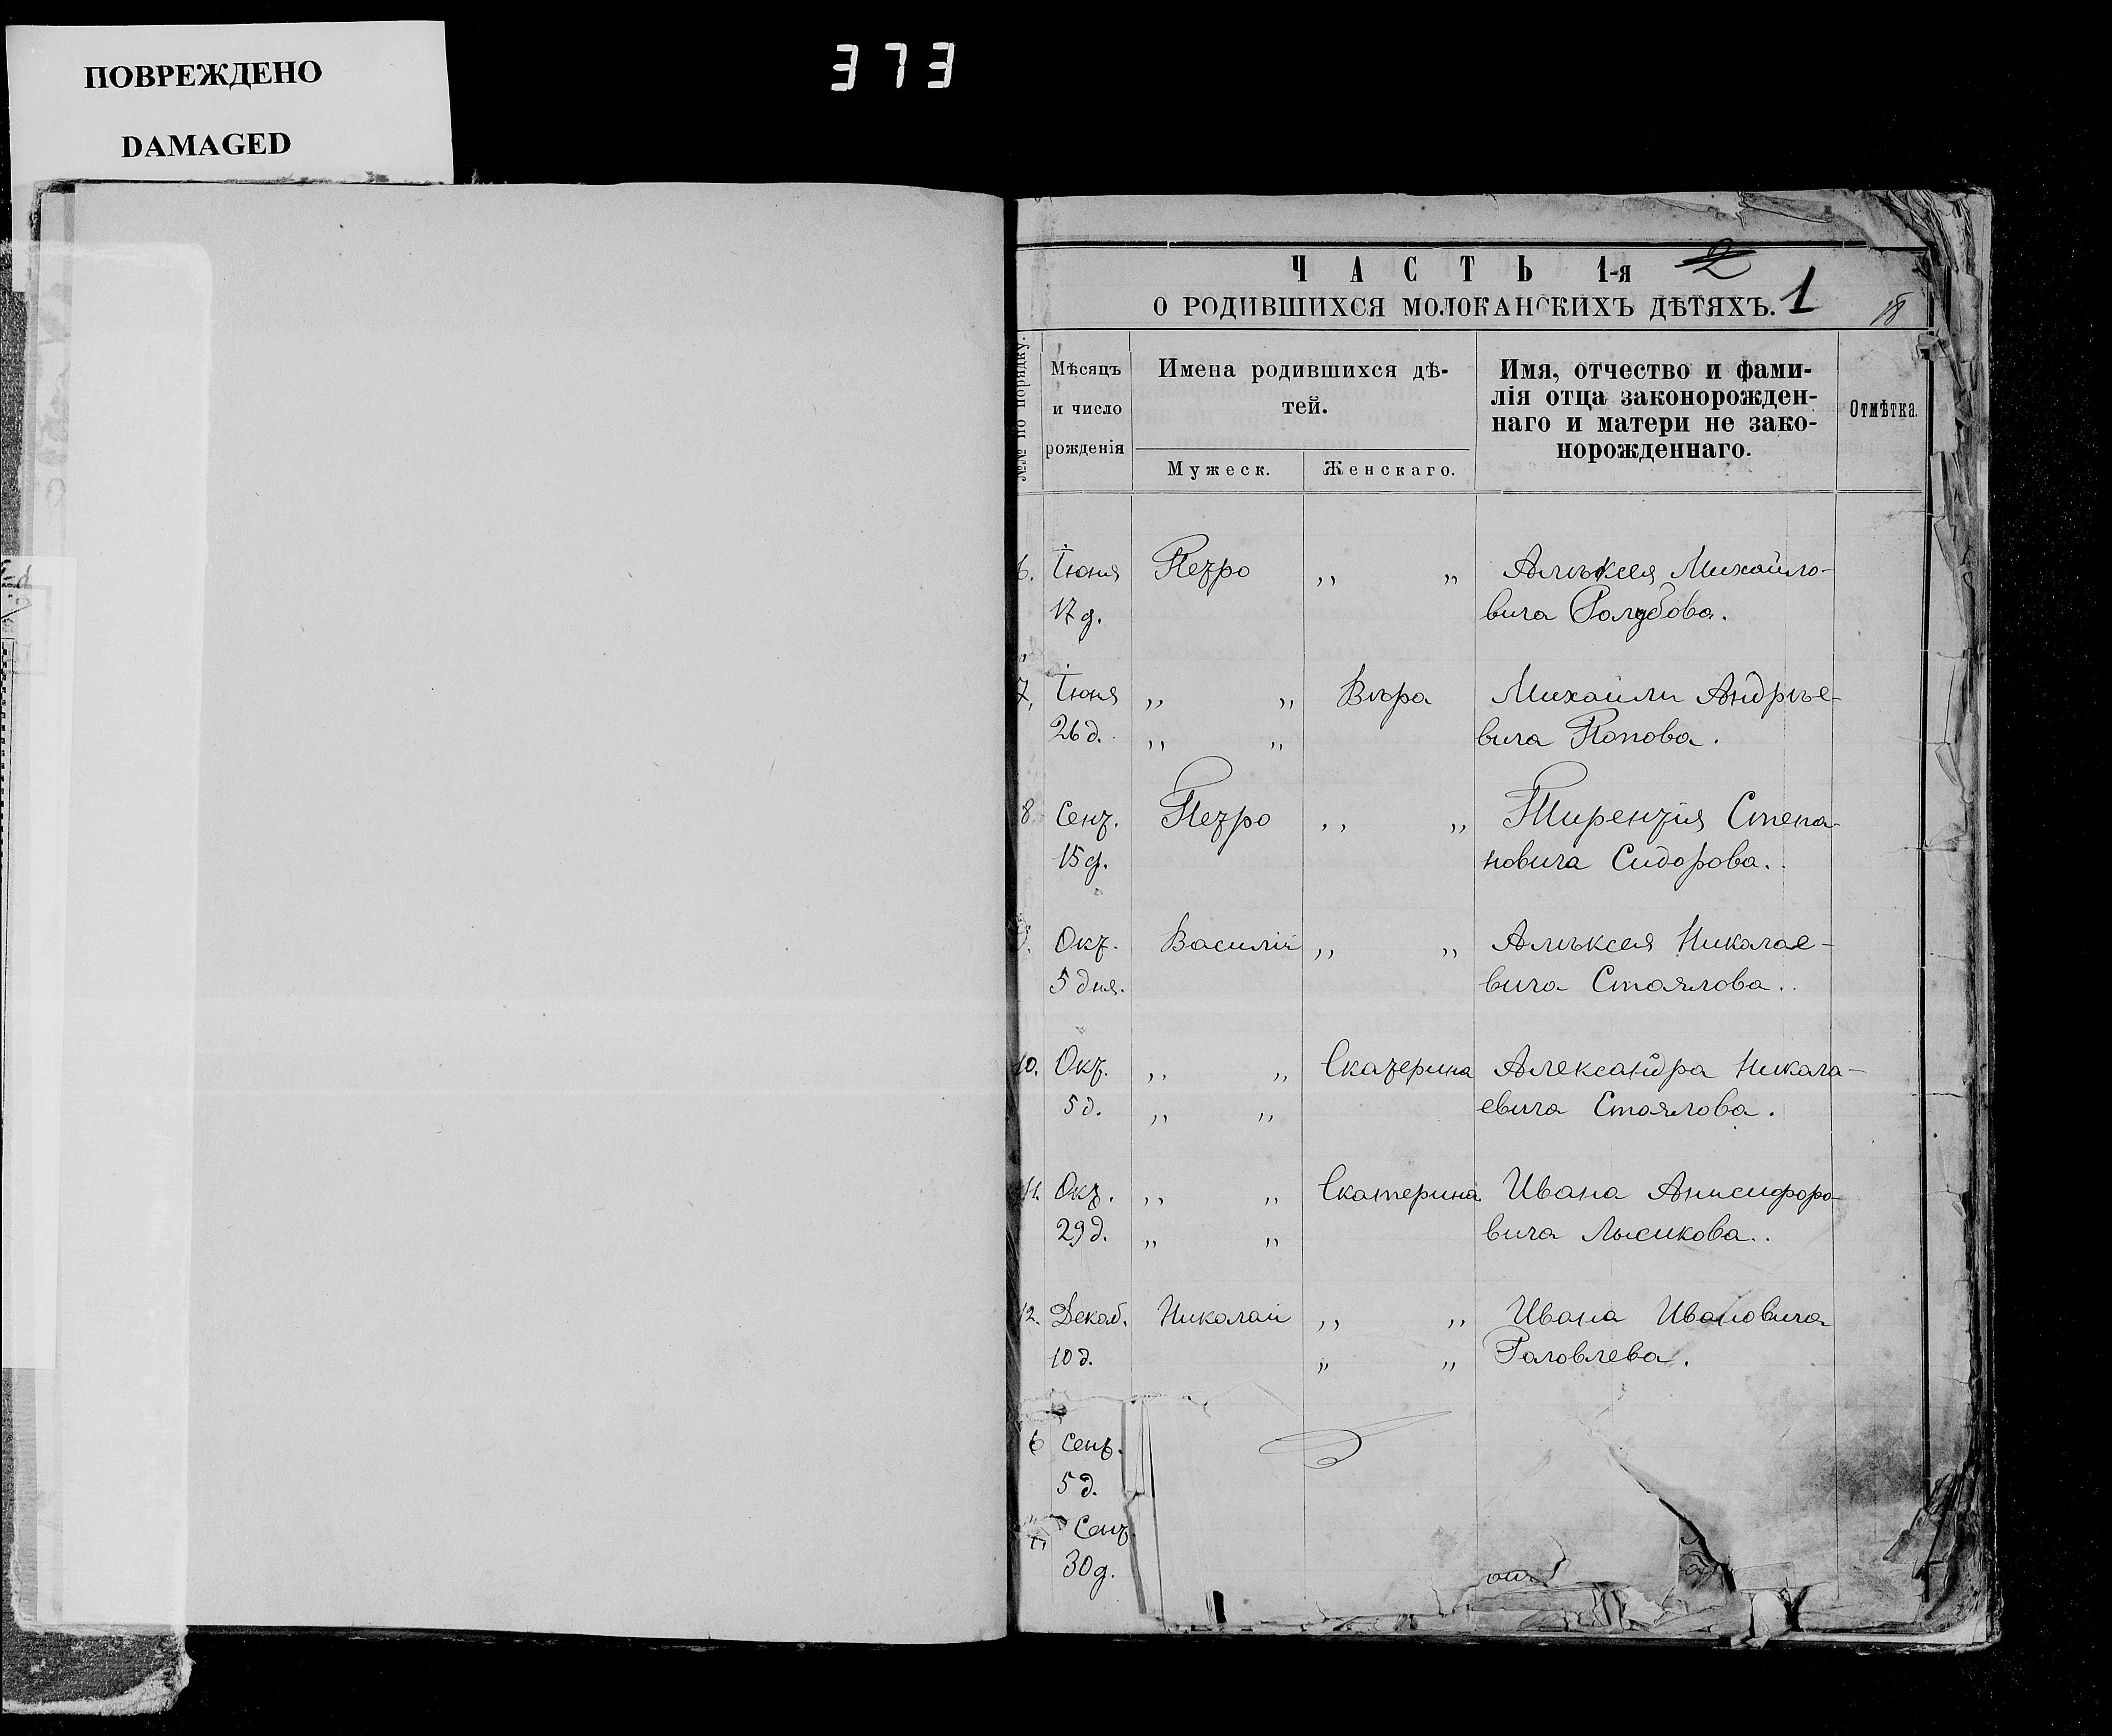 ПОВРЕЖДЕНО
DAMAGED
373
ЧАСТЬ 1-я 2
О РОДИВШИХСЯ МОЛОКАНСКИХЪ ДѢТЯХЪ. 1
18
№№ по порядку.
Мѣсяцъ и число рожденія
Имена родившихся дѣ-
тей.
Мужеск.
Женскаго.
Имя, отчество и фами-
лія отца законорожден-
наго и матери не зако-
норожденнаго.
Отмѣтка.
6. Іюня Петро „ „ Алѣксея Михайло-
17 д. вича Голубова.
7. Іюня „ „ Вѣра Михаили Андрѣе-
26 д. „ „ вича Попова.
8. Сент. Петро „ „ Тирентія Степа-
15 д. новича Сидорова.
Окт. Василій „ „ Алѣксея Николае-
5 дня. вича Стоялова.
10. Окт. „ „ Екатерина Александра Никала-
5 д. „ „ евича Стоялова.
11. Окт. „ „ Екатерина. Ивана Анисифоро-
29 д. „ „ вича Лысикова.
12. Декаб. Николай „ „ Ивана Ивановича
10 д. „ „ Головлева.
6 Сент.
5 д.
Сент.
30 д.